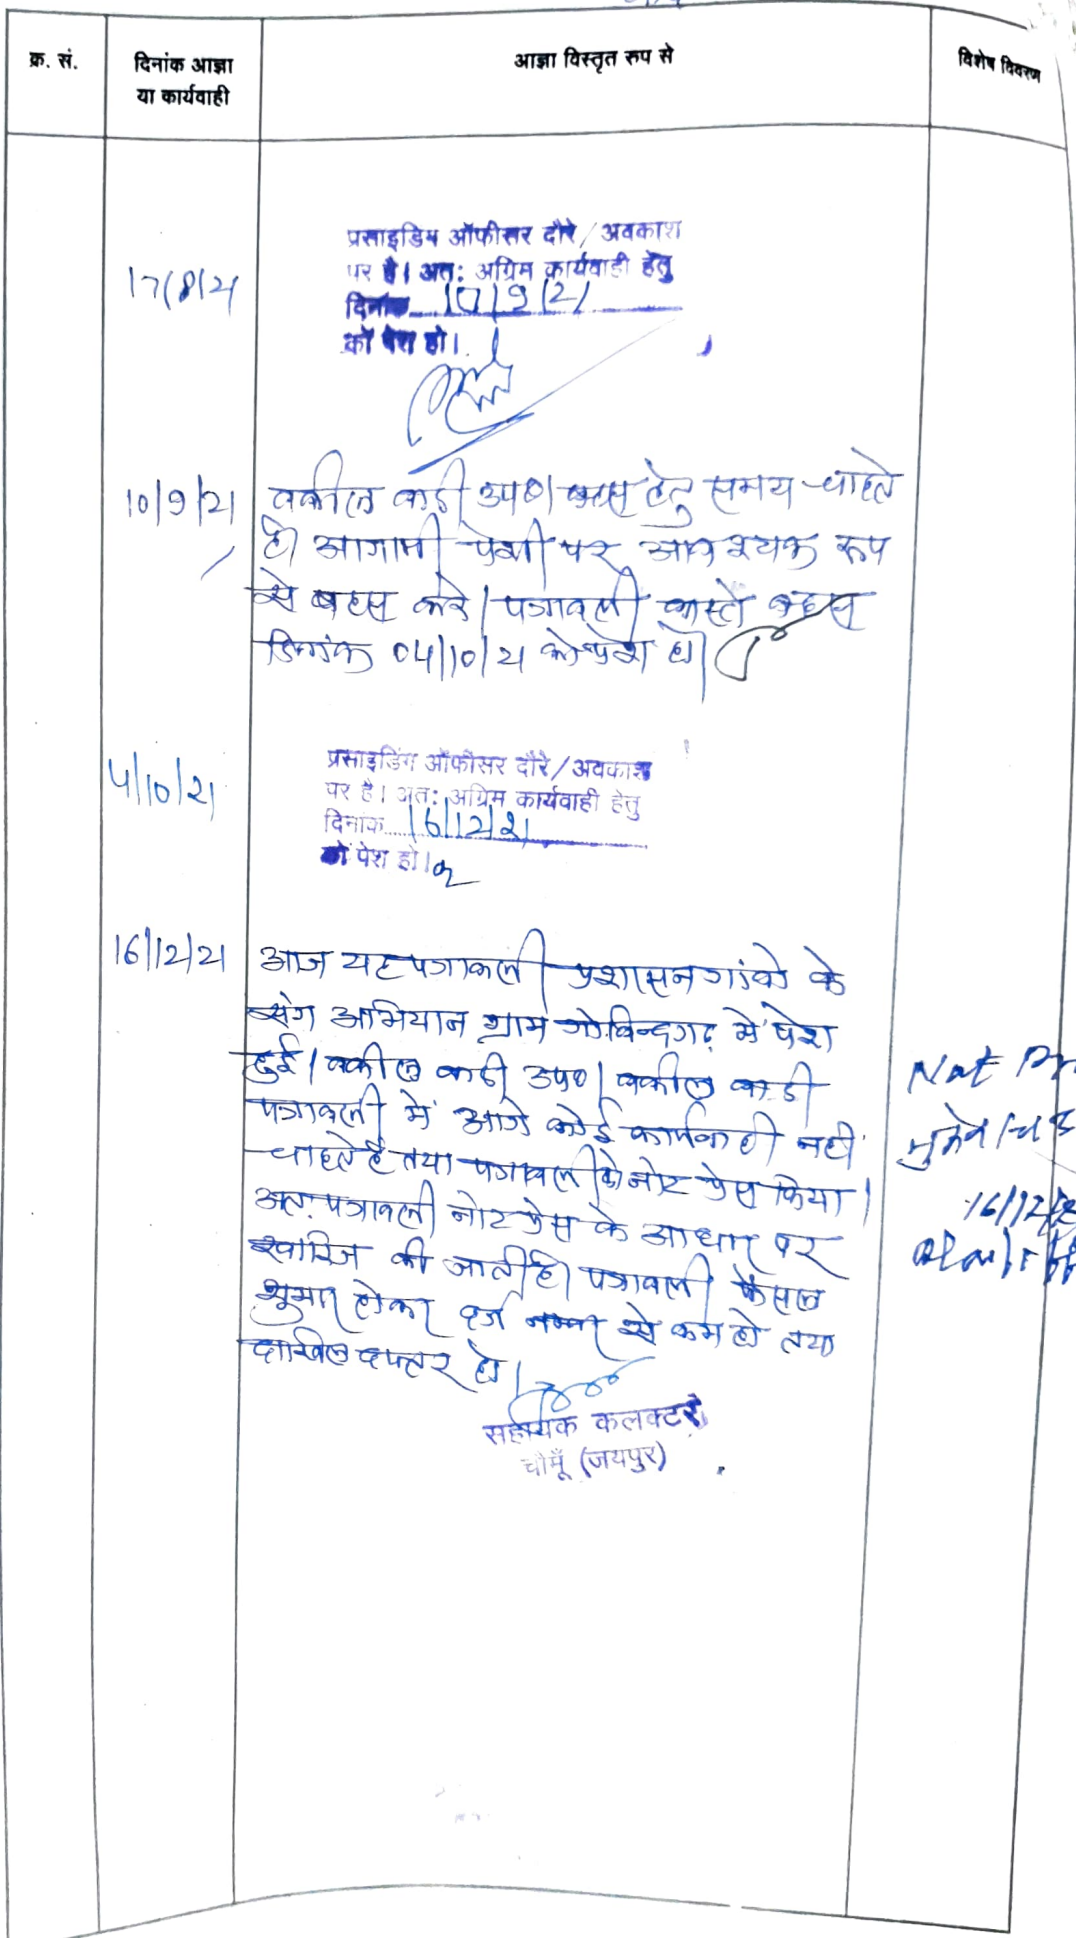 क्र. सं.
दिनांक आज्ञा
या कार्यवाही
आज्ञा विस्तृत रुप से
विशेष विवरण
17/8/21
प्रसाइडिंग ऑफीसर दौरे/अवकाश
पर है। अत: अग्रिम कार्यवाही हेतु
दिनांक 10/9/21
को पेश हो।
10/9/21
वकील वादी उप० बहस हेतु समय चाहते
है। आगामी पेशी पर आवश्यक रूप
से बहस करे। पत्रावली वास्ते बहस
दिनांक 04/10/21 को पेश हो।
4/10/21
प्रसाइडिंग ऑफीसर दौरे/अवकाश
पर है। अत: अग्रिम कार्यवाही हेतु
दिनांक 16/12/21
को पेश हो।
16/12/21
आज यह पत्रावली प्रशासन गांवो के
संग अभियान ग्राम गोविन्दगढ़ में पेश
हुई। वकील वादी उप०। वकील वादी
पत्रावली में आगे कोई कार्यवाही नही
चाहते है तथा पत्रावली को नोट प्रेस किया।
अतः पत्रावली नोट प्रेस के आधार पर
खारिज की जाती है। पत्रावली फैसल
शुमार होकर दर्ज नम्बर से कम हो तथा
दाखिल दफ्तर हो।
सहायक कलक्टर
चौमूँ (जयपुर)
Not
16/12/2